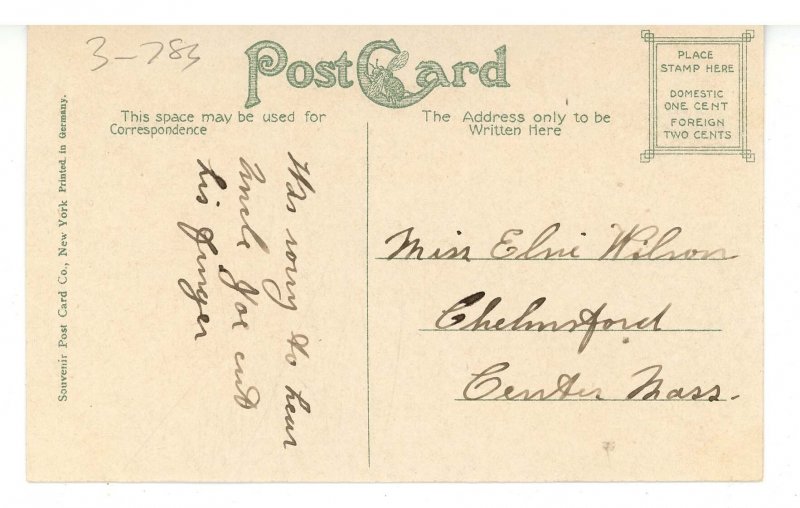 3-783
Post Card
This space may be used for
Correspondence
The Address only to be
Written Here
PLACE
STAMP HERE
DOMESTIC
ONE CENT
FOREIGN
TWO CENTS
Souvenir Post Card Co., New York Printed in Germany.
Was sorry to hear
Uncle Joe cut
his finger
Miss Elsie Wilson
Chelmsford
Center Mass.